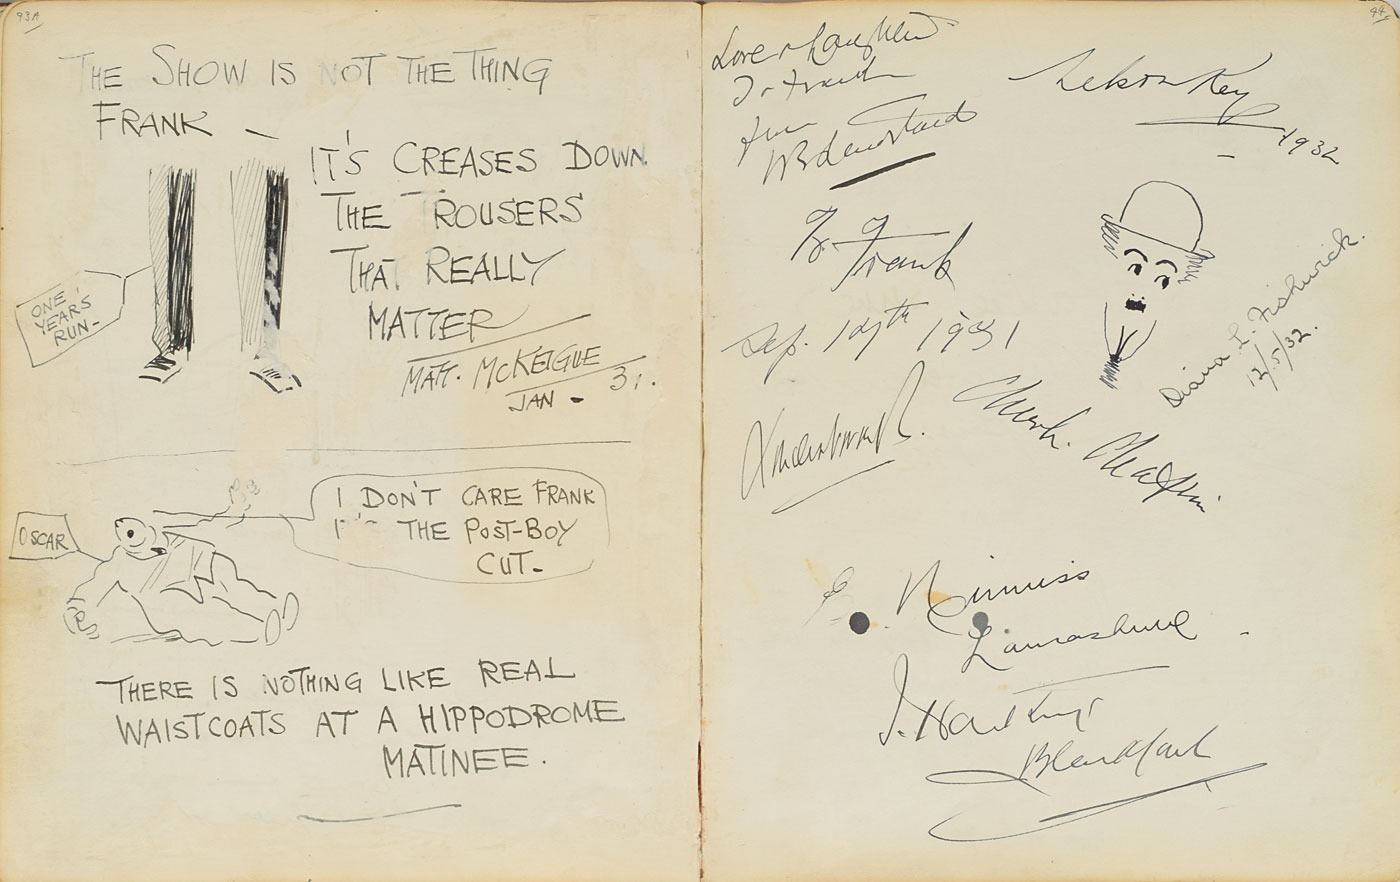 93A
THE SHOW IS NOT THE THING
FRANK —
IT'S CREASES DOWN
THE TROUSERS
THAT REALLY
MATTER
MATT. McKEIGUE
JAN - 31.
ONE
YEARS
RUN-
I DON'T CARE FRANK
IT'S THE POST-BOY
CUT-
OSCAR
THERE IS NOTHING LIKE REAL
WAISTCOATS AT A HIPPODROME
MATINEE.
94
Love & Laughter
To Frank
from
Nelson Key
1932
To Frank
Sep. 14th 1931
Charlie Chaplin
Diana L. Fishwick.
12/5/32.
Lancashire